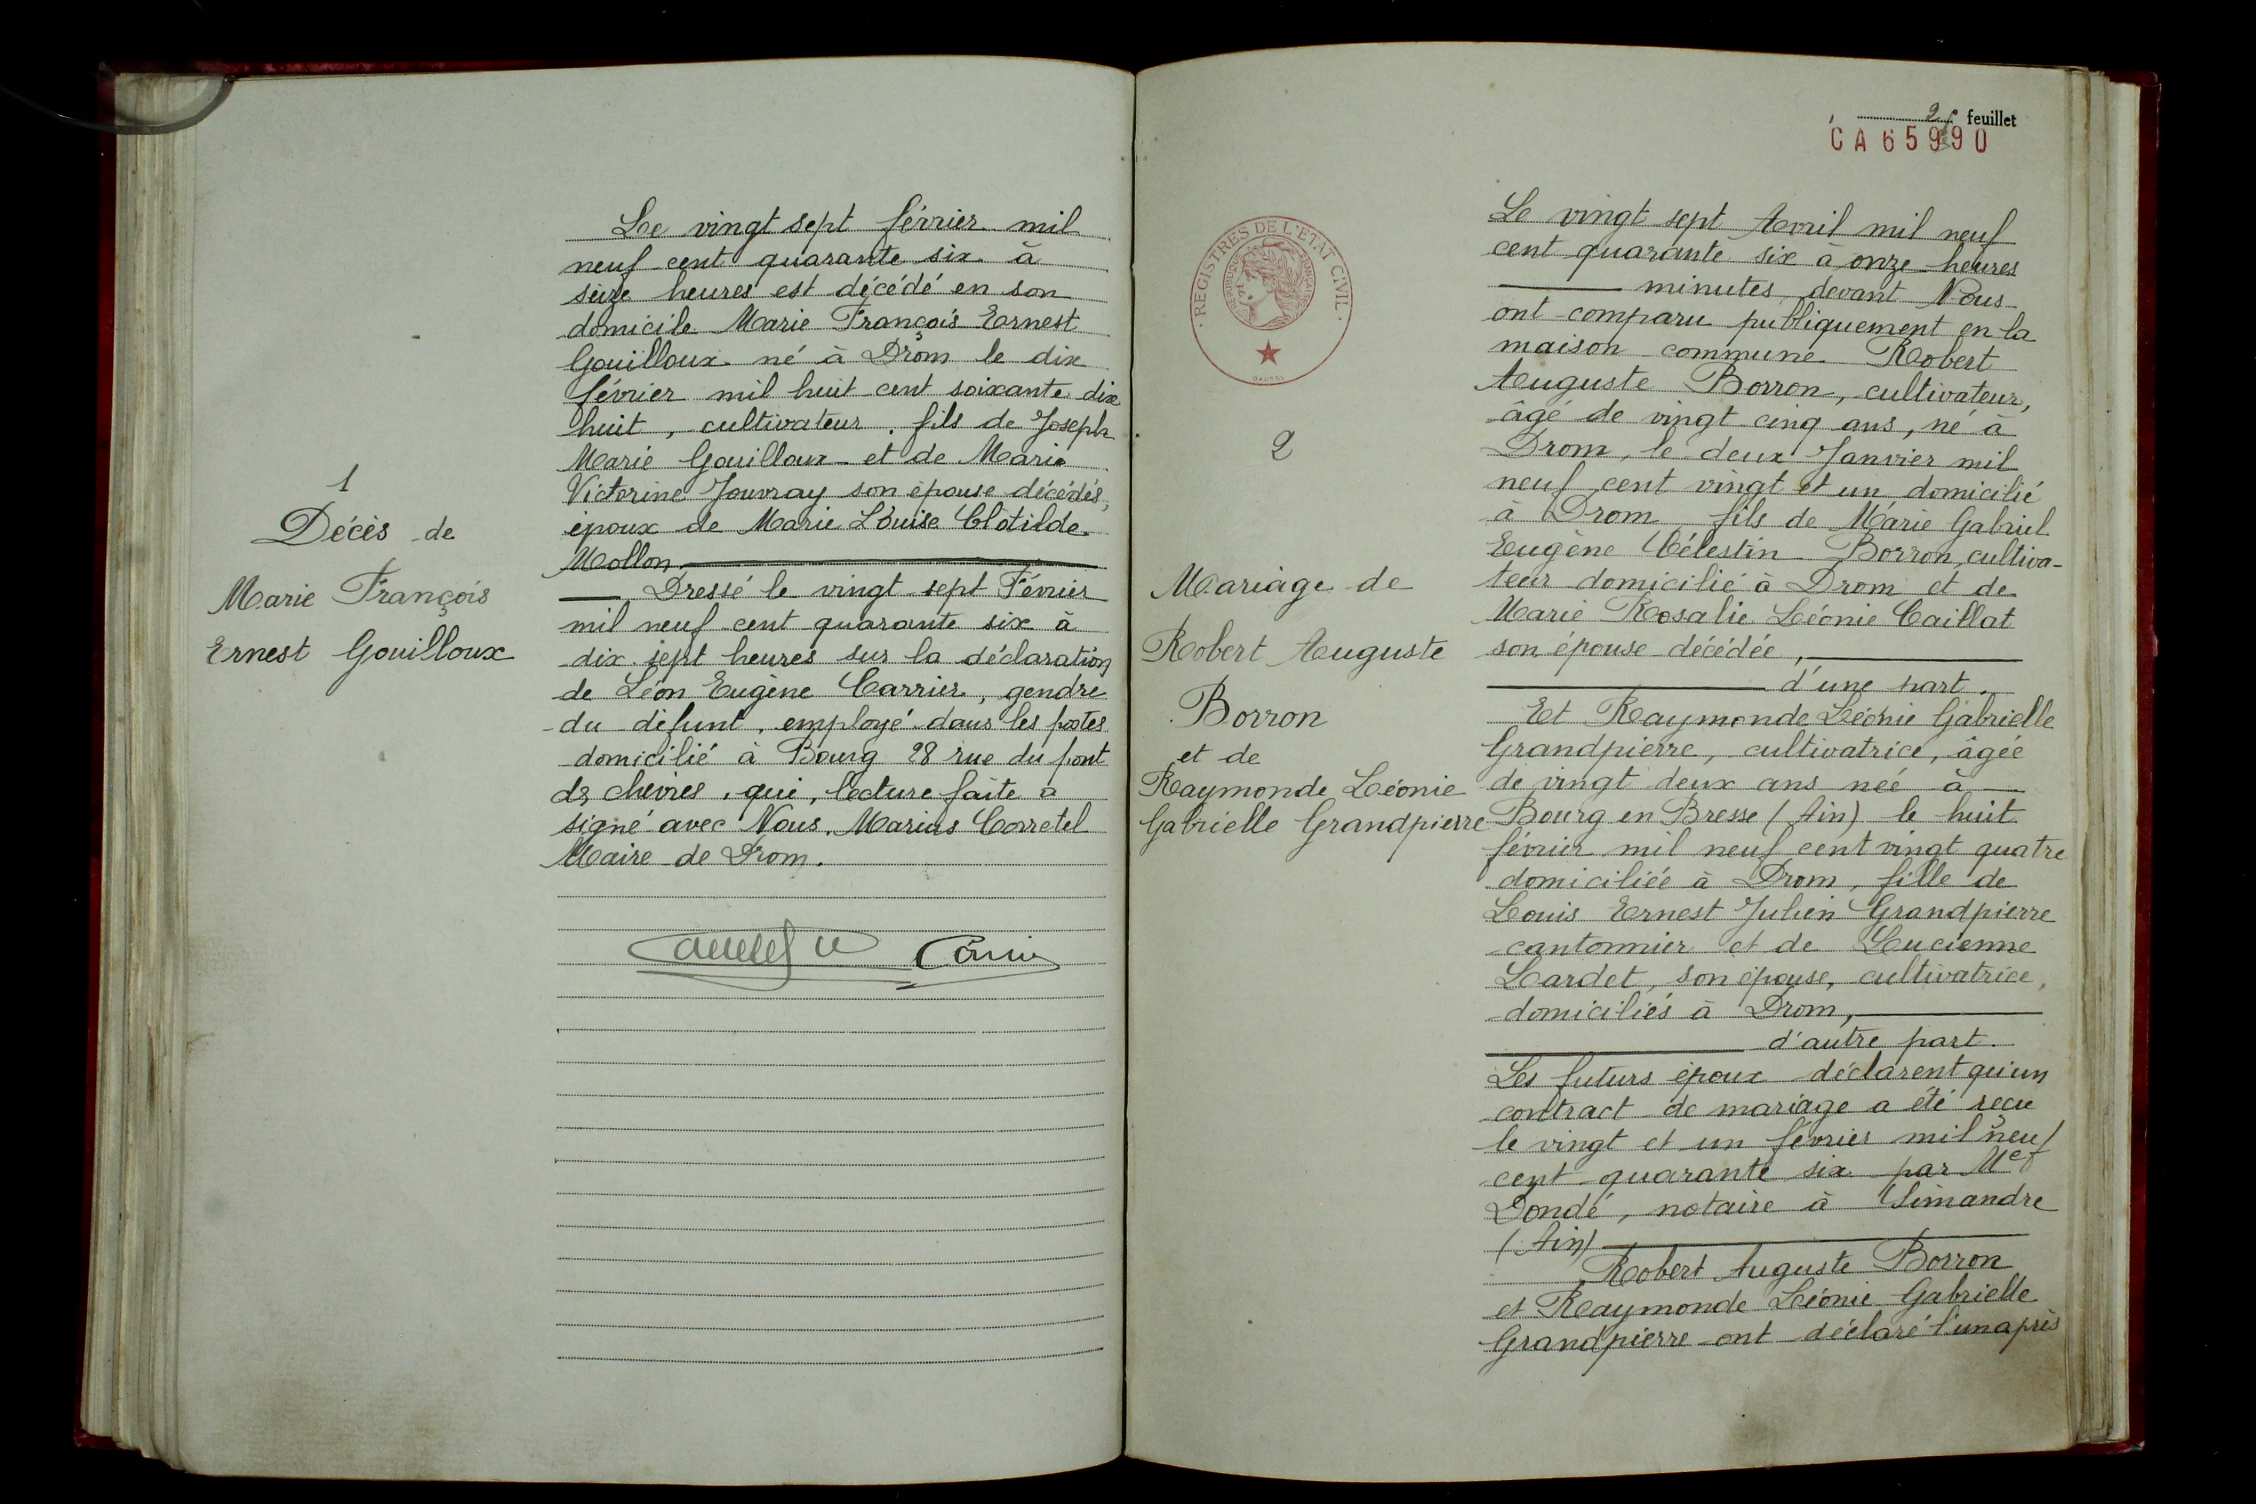 1
Décès de
Marie François
Ernest Gouilloux
Le vingt sept février mil
neuf cent quarante six à
seize heures est décédé en son
domicile Marie François Ernest
Gouilloux né à Drom le dix
février mil huit cent soixante dix
huit, cultivateur, fils de Joseph
Marie Gouilloux et de Marie
Victorine Jouvray son épouse décédés,
époux de Marie Louise Clotilde
Mollon
Dressé le vingt sept Février
mil neuf cent quarante six à
dix sept heures sur la déclaration
de Léon Eugène Carrier, gendre
du défunt, employé dans les postes
domicilié à Bourg 28 rue du pont
des chèvres, qui, lecture faite a
signé avec Nous, Marius Corretel
Maire de Drom.
2 feuillet
CA65990
REGISTRES DE L'ETAT CIVIL
2
Mariage de
Robert Auguste
Borron
et de
Raymonde Léonie
Gabrielle Grandpierre
Le vingt sept Avril mil neuf
cent quarante six à onze heures
minutes devant Nous
ont comparu publiquement en la
maison commune Robert
Auguste Borron, cultivateur,
âgé de vingt cinq ans, né à
Drom, le deux Janvier mil
neuf cent vingt et un domicilié
à Drom fils de Marie Gabriel
Eugène Célestin Borron, cultiva-
teur domicilié à Drom et de
Marie Rosalie Léonie Caillat
son épouse décédée,
d'une part.
Et Raymonde Léonie Gabrielle
Grandpierre, cultivatrice, âgée
de vingt deux ans née à
Bourg en Bresse (Ain) le huit
février mil neuf cent vingt quatre
domiciliée à Drom, fille de
Louis Ernest Julien Grandpierre
cantonnier et de Lucienne
Lardet, son épouse, cultivatrice,
domiciliés à Drom,
d'autre part.
Les futurs époux déclarent qu'un
contract de mariage a été reçu
le vingt et un février mil neuf
cent quarante six par Me
Dondé, notaire à Simandre
(Ain)
Robert Auguste Borron
et Raymonde Léonie Gabrielle
Grandpierre ont déclaré l'un après